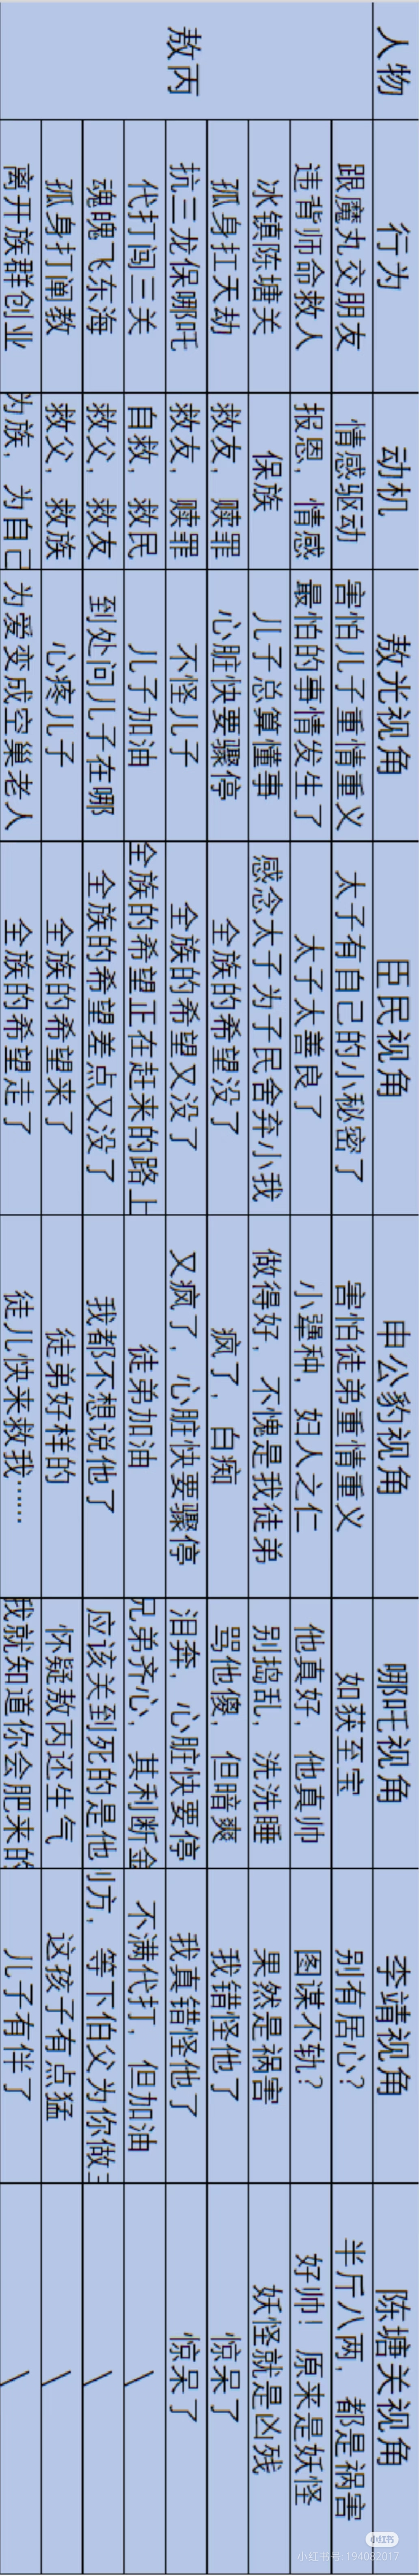 人物 行为 动机 敖光视角 臣民视角 申公豹视角 哪吒视角 李靖视角 陈塘关视角
敖丙
跟魔丸交朋友 情感驱动 害怕儿子重情重义 太子有自己的小秘密了 害怕徒弟重情重义 如获至宝 别有居心? 半斤八两,都是祸害
违背师命救人 报恩,情感 最怕的事情发生了 太子太善良了 小犟种,妇人之仁 他真好,他真帅 图谋不轨? 好帅!原来是妖怪
冰镇陈塘关 保族 儿子总算懂事 感念太子为了民舍弃小我 做得好,不愧是我徒弟 别捣乱,洗洗睡 果然是祸害 妖怪就是凶残
孤身扛天劫 救友,赎罪 心脏快要骤停 全族的希望没了 疯了,白痴 骂他傻,但暗爽 我错怪他了 惊呆了
抗三龙保哪吒 救友,赎罪 不怪儿子 全族的希望又没了 又疯了,心脏快要骤停 泪奔,心脏快要停 我真错怪他了 惊呆了
代打闯三关 自救,救民 儿子加油 全族的希望正在赶来的路上 徒弟加油 兄弟齐心,其利断金 不满代打,但加油 \
魂魄飞东海 救父,救友 到处问儿子在哪 全族的希望差点又没了 我都不想说他了 应该关到死的是他 方,等下伯父为你做主 \
孤身打闸教 救父,救族 心疼儿子 全族的希望来了 徒弟好样的 怀疑敖丙还生气 这孩子有点猛 \
离开族群创业 为族,为自己 为爱变成空巢老人 全族的希望走了 徒儿快来救我…… 我就知道你会肥来的 儿子有伴了 \
小红书
小红书号:194082017